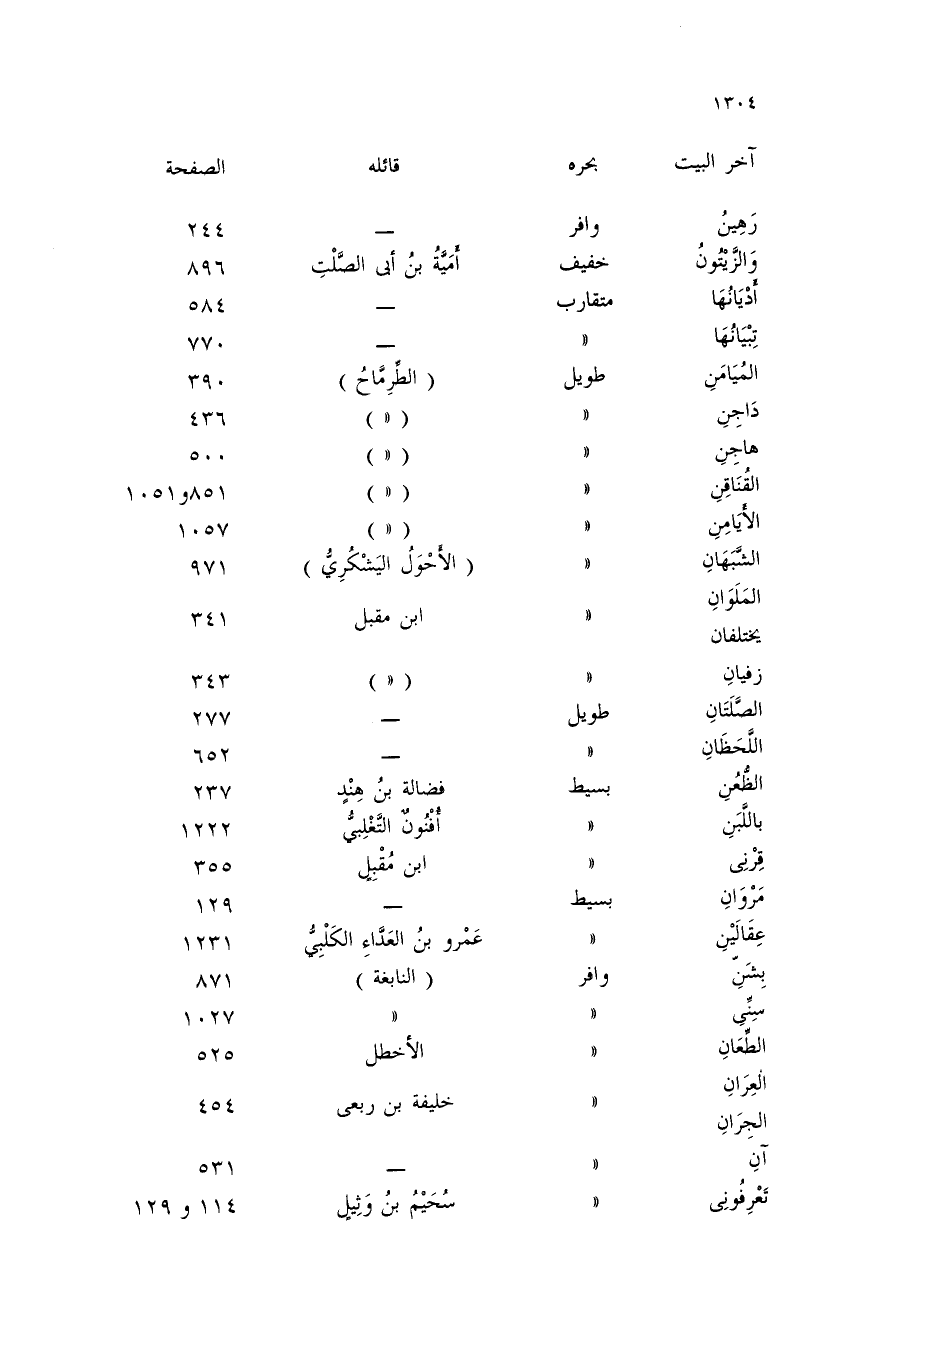 ١٣٠٤
آخر البيت بحره قائله الصفحة
رَهِينُ وافر — ٢٤٤
وَالزَّيْتُونُ خفيف أُمَيَّةُ بنُ أبى الصَّلْتِ ٨٩٦
أَدْيَانُهَا متقارب — ٥٨٤
تِبْيَانُهَا « — ٧٧٠
المُيَامَنِ طويل ( الطِّرِمَّاحُ ) ٣٩٠
دَاجِنِ « ( « ) ٤٣٦
هاجِنِ « ( « ) ٥٠٠
القُنَاقِنِ « ( « ) ٨٥١و١٠٥١
الأَيَامِنِ « ( « ) ١٠٥٧
الشَّبَهَانِ « ( الأَحْوَلُ اليَشْكُرِيُّ ) ٩٧١
المَلَوَانِ
يختلفان « ابن مقبل ٣٤١
زفيانِ « ( « ) ٣٤٣
الصَّلَتَانِ طويل — ٢٧٧
اللَّحَظَانِ « — ٦٥٢
الظُّعُنِ بسيط فضالة بنُ هِنْدٍ ٢٣٧
باللَّبَنِ « أُفْنُونٌ التَّغْلِبيُّ ١٢٢٢
قِرْنِى « ابن مُقْبِلٍ ٣٥٥
مَرْوَانِ بسيط — ١٢٩
عِقَالَيْنِ « عَمْرو بنُ العَدَّاءِ الكَلْبِيُّ ١٢٣١
بِشَنِّ وافر ( النابغة ) ٨٧١
سِنِّي « « ١٠٢٧
الطِّعَانِ « الأخطل ٥٢٥
العِرَانِ
الجِرَانِ « خليفة بن ربعى ٤٥٤
آنِ « — ٥٣١
تَعْرِفُونِى « سُحَيْمُ بنُ وَثِيلٍ ١١٤ و ١٢٩